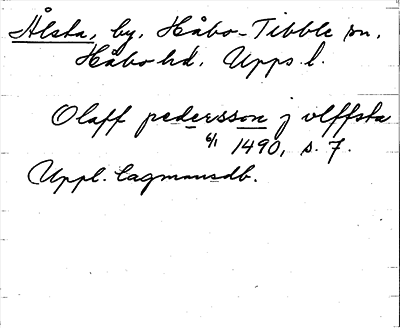 Ålsta, by, Håbo-Tibble sn,
Håbo hd, Upps. l.
Olaff pedersson j vlffsta
6/1 1490, s. 7.
Uppl. lagmansdb.